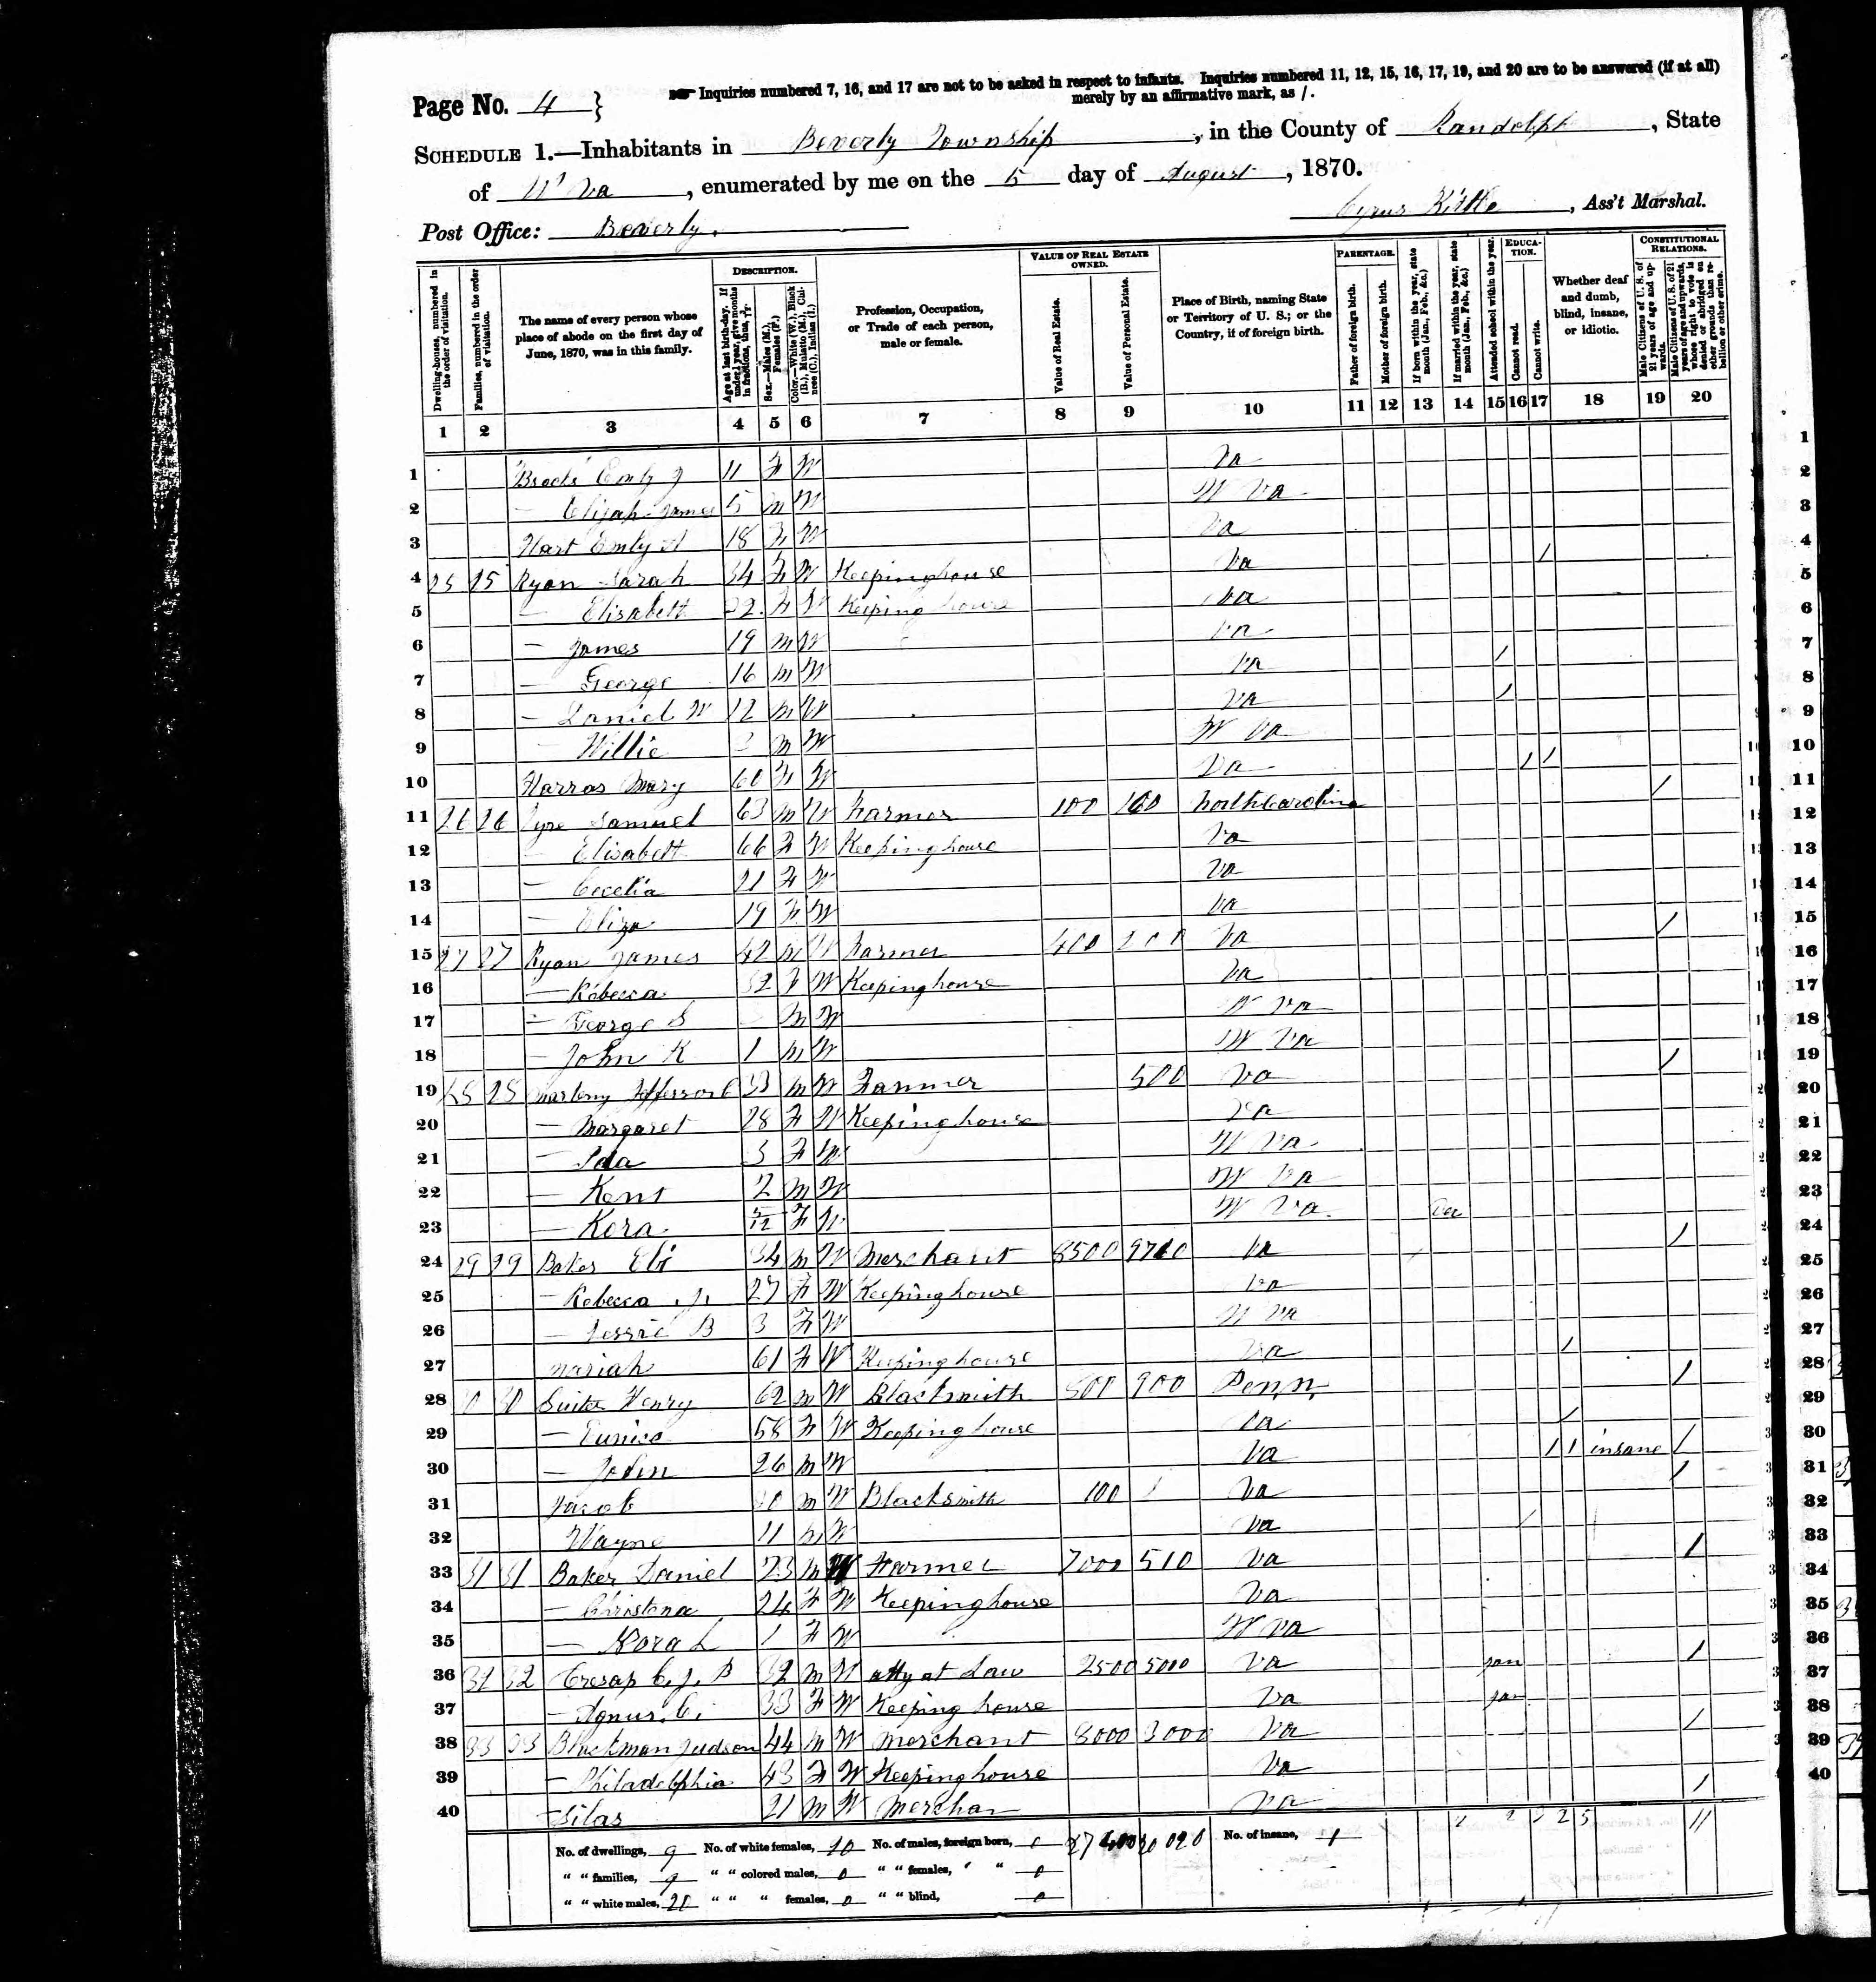 Page No. 4 }
Inquiries numbered 7, 16, and 17 are not to be asked in respect to infants. Inquiries numbered 11, 12, 15, 16, 17, 19, and 20 are to be answered (if at all)
merely by an affirmative mark, as /.
SCHEDULE 1.—Inhabitants in Beverly Township, in the County of Randolph, State
of W Va, enumerated by me on the 5 day of August, 1870.
Post Office: Beverly. Cyrus Kittle, Ass't Marshal.
Dwelling-houses, numbered in the order of visitation.
Families, numbered in the order of visitation.
The name of every person whose place of abode on the first day of June, 1870, was in this family.
DESCRIPTION.
Age at last birth-day. If under 1 year, give months in fractions, thus,
Sex.—Males (M.), Females (F.)
Color.—White (W.), Black (B.), Mulatto (M.), Chinese (C.), Indian (I.)
Profession, Occupation, or Trade of each person, male or female.
VALUE OF REAL ESTATE OWNED.
Value of Real Estate.
Value of Personal Estate.
Place of Birth, naming State or Territory of U. S.; or the Country, if of foreign birth.
PARENTAGE.
Father of foreign birth.
Mother of foreign birth.
If born within the year, state month (Jan., Feb., &c.)
If married within the year, state month (Jan., Feb., &c.)
Attended school within the year.
EDUCATION.
Cannot read.
Cannot write.
Whether deaf and dumb, blind, insane, or idiotic.
CONSTITUTIONAL RELATIONS.
Male Citizens of U. S. of 21 years of age and upwards.
Male Citizens of U. S. of 21 years of age and upwards, whose right to vote is denied or abridged on other grounds than rebellion or other crime.
1 2 3 4 5 6 7 8 9 10 11 12 13 14 15 16 17 18 19 20
1 Emly J 11 F W Va
2 — Elijah James 5 M W W Va
3 Hart Emly 18 F W Va
4 25 25 Ryan Sarah 34 F W Keepinghouse Va /
5 — Elisabett 22 F W Keeping house Va
6 — James 19 M W Va
7 — George 16 M W Va /
8 — Daniel W 12 M W Va /
9 — Willie M W W Va
10 Mary 60 F W Va / /
11 26 26 Samuel 63 M W Farmer 100 100 North Carolina /
12 — Elisabett 66 F W Keepinghouse Va
13 — Cecelia 21 F W Va
14 — Eliza 19 F W Va
15 27 27 Ryan James 42 M W Farmer 400 200 Va /
16 — Rebecca 32 F W Keepinghouse Va
17 — George S M W W Va
18 — John K 1 M W W Va
19 28 28 33 M W Farmer 500 Va /
20 — Margaret 28 F W Keepinghouse Va
21 — Ida 3 F W W Va
22 — Kent 2 M W W Va
23 — Kora 5/12 F W W Va
24 29 29 Baker Eli 34 M W Merchant 8500 Va /
25 — Rebecca J. 27 F W Keepinghouse Va
26 — Jessie B 3 F W W Va
27 Mariah 61 F W Keepinghouse Va /
28 30 30 Suiter Henry 62 M W Blacksmith 800 900 Penn /
29 — Eunice 58 F W Keepinghouse Va /
30 — John 26 M W Va / / insane /
31 Jacob 30 M W Blacksmith 100 Va /
32 Wayne 11 M W Va /
33 31 31 Baker Daniel 23 M W Farmer 7000 510 Va /
34 — Christena 24 F W Keepinghouse Va
35 — Nora L 1 F W W Va
36 32 32 Cresap C. J. P 32 M W Atty at Law 2500 5000 Va Jan /
37 — Agnus. C. 33 F W Keeping house Va Jan
38 33 33 Blackman Judson 44 M W Merchant 8000 3000 Va /
39 — Philadelphia 43 F W Keepinghouse Va
40 — Silas 21 M W Merchan Va /
No. of dwellings, 9 No. of white females, 20 No. of males, foreign born, 0 No. of insane, 1 11
" " families, 9 " " colored males, 0 " " females, " " 0
" " white males, 20 " " " females, 0 " " blind, 0